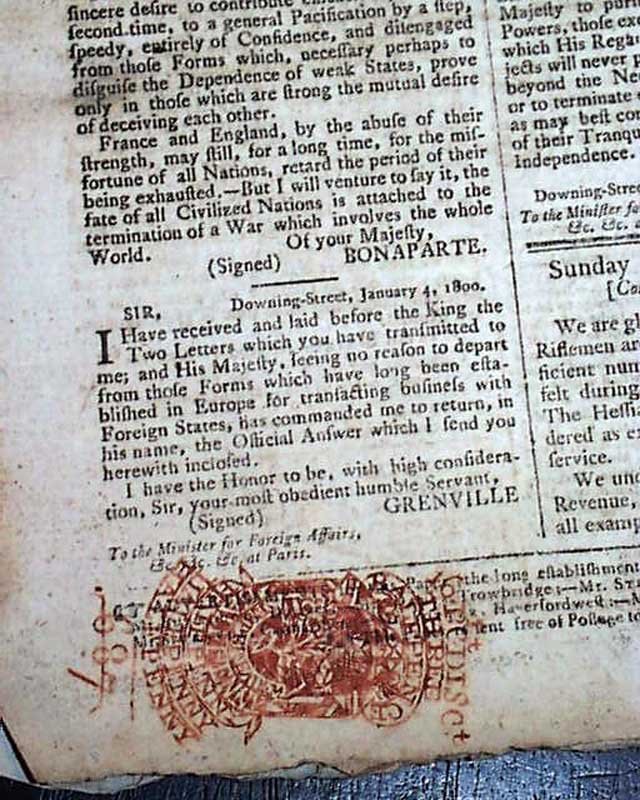 sincere desire to contribute
second time, to a general Pacification by a step,
speedy, entirely of Confidence, and disengaged
from those Forms which, necessary perhaps to
disguise the Dependence of weak States, prove
only in those which are strong the mutual desire
of deceiving each other.
France and England, by the abuse of their
ſtrength, may ſtill, for a long time, for the miſ-
fortune of all Nations, retard the period of their
being exhauſted.—But I will venture to ſay it, the
fate of all Civilized Nations is attached to the
termination of a War which involves the whole
World.
Of your Majeſty,
(Signed) BONAPARTE.
Downing-Street, January 4, 1800.
SIR,
I Have received and laid before the King the
Two Letters which you have tranſmitted to
me; and His Majeſty, ſeeing no reaſon to depart
from thoſe Forms which have long been eſta-
bliſhed in Europe for tranſacting buſineſs with
Foreign States, has commanded me to return, in
his name, the Official Anſwer which I ſend you
herewith incloſed.
I have the Honor to be, with high conſidera-
tion, Sir, your moſt obedient humble Servant,
(Signed) GRENVILLE
To the Miniſter for Foreign Affairs,
&c. &c. &c. at Paris.
Majeſty to
Powers, thoſe
which His
jects will never
beyond the
or to terminate
as may beſt
of their
Independence.
To the Miniſter
&c. &c.
Sunday
We are
Riflemen
felt during
The
dered as
ſervice.
We
Revenue,
all
the long eſtabliſhment
Trowbridge:—Mr.
Haverfordweſt:—
free of Poſtage